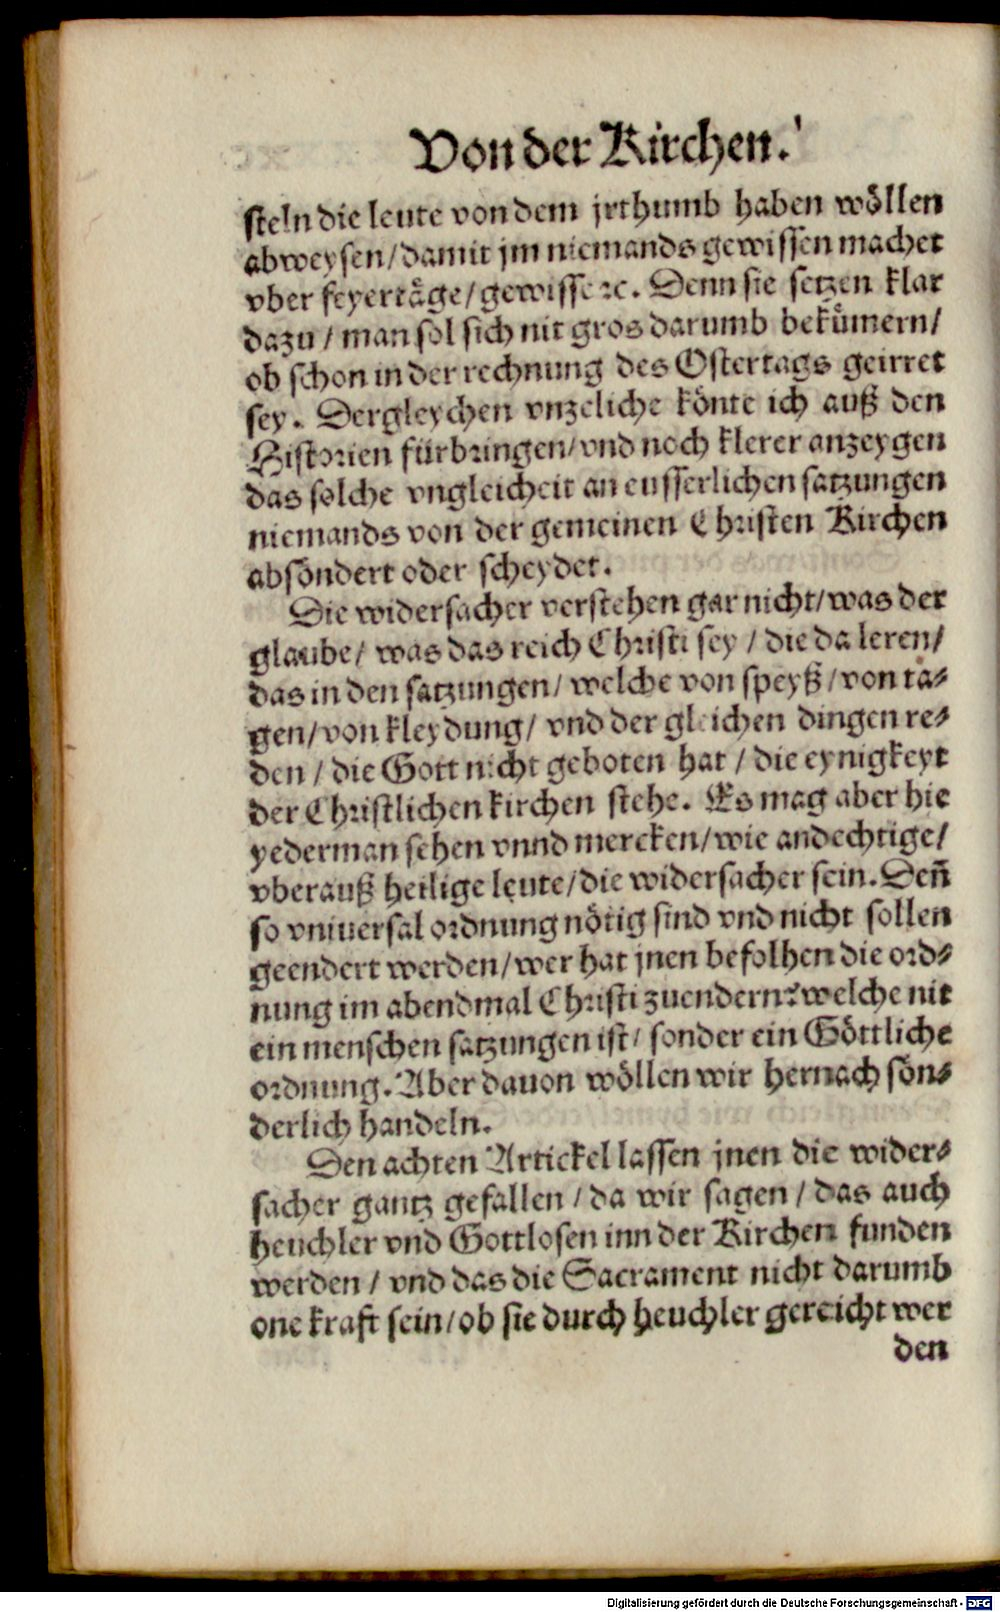 Von der Kirchen.
steln die leute von dem jrthumb haben wöllen
abweysen/ damit jm niemands gewissen machet
vber feyertäge/ gewisse ꝛc. Denn sie setzen klar
dazu / man sol sich nit gros darumb bekümern/
ob schon in der rechnung des Ostertags geirret
sey. Dergleychen vnzeliche könte ich auß den
Historien fürbringen/ vnd noch klerer anzeygen
das solche vngleicheit an eusserlichen satzungen
niemands von der gemeinen Christen Kirchen
absöndert oder scheydet.
Die widersacher verstehen gar nicht/ was der
glaube/ was das reich Christi sey / die da leren/
das in den satzungen/ welche von speyß/ von ta-
gen/ von kleydung/ vnd der gleichen dingen re-
den / die Gott nicht geboten hat / die eynigkeyt
der Christlichen kirchen stehe. Es mag aber hie
yederman sehen vnnd mercken/ wie andechtige/
vberauß heilige leute/ die widersacher sein. Deñ
so vniuersal ordnung nötig sind vnd nicht sollen
geendert werden/ wer hat jnen befolhen die ord-
nung im abendmal Christi zuendern? welche nit
ein menschen satzungen ist/ sonder ein Göttliche
ordnung. Aber dauon wöllen wir hernach sön-
derlich handeln.
Den achten Artickel lassen jnen die wider-
sacher gantz gefallen / da wir sagen / das auch
heuchler vnd Gottlosen inn der Kirchen funden
werden / vnd das die Sacrament nicht darumb
one kraft sein/ ob sie durch heuchler gereicht wer
den
Digitalisierung gefördert durch die Deutsche Forschungsgemeinschaft - DFG